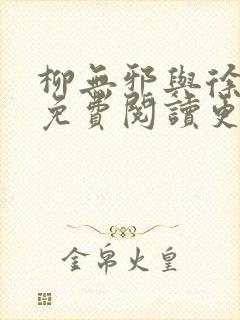 柳無邪與徐
免費閱讀更
金帛火皇